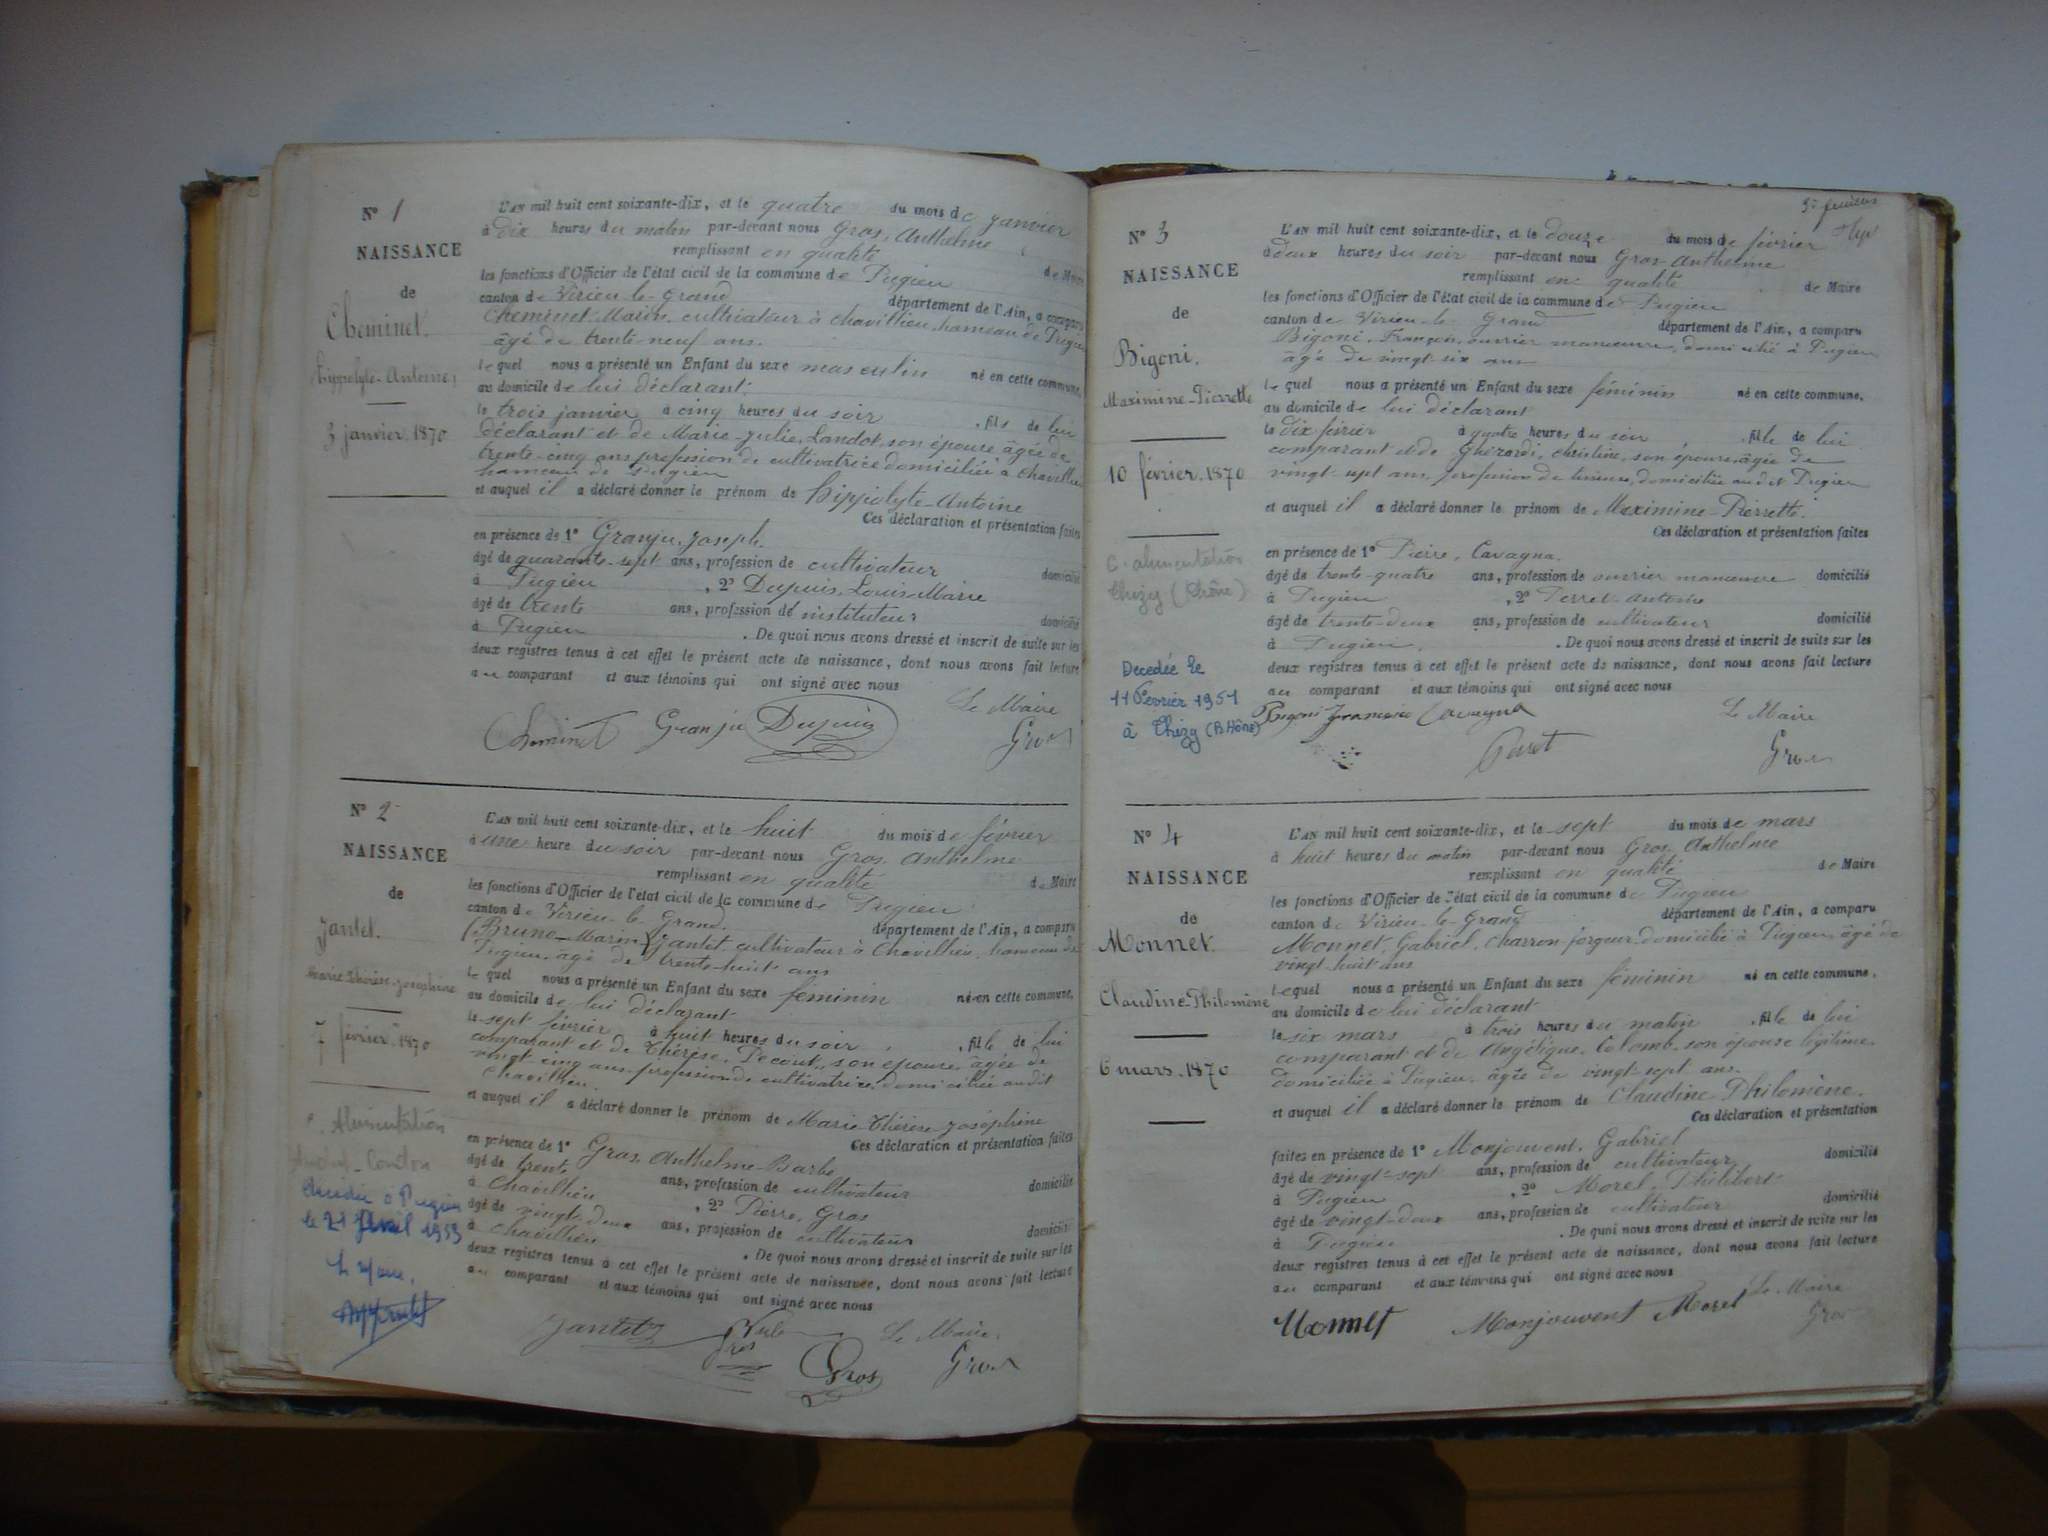 N° 1
NAISSANCE
de
Cheminet.
hippolyte-Antoine,
3 janvier 1870
L'AN mil huit cent soixante-dix, et le quatre du mois de janvier
à dix heures du matin par-devant nous Gros, Anthelme
remplissant en qualité de Maire
les fonctions d'Officier de l'état civil de la commune de Pugieu
canton de Virieu-le-Grand département de l'Ain, a comparu
Cheminet Marin, cultivateur à Chavillieu hameau de Pugieu
âgé de trente-neuf ans.
lequel nous a présenté un Enfant du sexe masculin né en cette commune,
au domicile de lui déclarant.
le trois janvier à cinq heures du soir , fils de lui
déclarant et de Marie-Julie, Landot, son épouse âgée de
trente-cinq ans profession de cultivatrice domiciliée à Chavillieu
hameau de Pugieu
et auquel il a déclaré donner le prénom de hippolyte-Antoine
Ces déclaration et présentation faites
en présence de 1° Granju, Joseph.
âgé de quarante-sept ans, profession de cultivateur domicilié
à Pugieu , 2° Dupuis, Louis-Marie
âgé de trente ans, profession de instituteur domicilié
à Pugieu . De quoi nous avons dressé et inscrit de suite sur les
deux registres tenus à cet effet le présent acte de naissance, dont nous avons fait lecture
au comparant et aux témoins qui ont signé avec nous
Le Maire
Cheminet Granju Dupuis Gros
N° 2
NAISSANCE
de
Jantet.
Marie-Thérèse-Joséphine
7 février 1870
Alimentation
décédée à Pugieu
le 21 Avril 1953
Le Maire,
L'AN mil huit cent soixante-dix, et le huit du mois de février
à une heure du soir par-devant nous Gros, Anthelme
remplissant en qualité de Maire
les fonctions d'Officier de l'état civil de la commune de Pugieu
canton de Virieu-le-Grand. département de l'Ain, a comparu
(Bruno-Marin) Jantet cultivateur à Chavillieu, hameau de
Pugieu, âgé de trente-huit ans
lequel nous a présenté un Enfant du sexe féminin né en cette commune,
au domicile de lui déclarant
le sept février à huit heures du soir , fille de lui
comparant et de Thérèse, Decout, son épouse, âgée de
vingt cinq ans profession de cultivatrice domiciliée audit
Chavillieu
et auquel il a déclaré donner le prénom de Marie-Thérèse-Joséphine
Ces déclaration et présentation faites
en présence de 1° Gros, Anthelme-Barbe
âgé de trente ans, profession de cultivateur domicilié
à Chavillieu , 2° Pierre, Gros
âgé de vingt-deux ans, profession de cultivateur domicilié
à Chavillieu . De quoi nous avons dressé et inscrit de suite sur les
deux registres tenus à cet effet le présent acte de naissance, dont nous avons fait lecture
au comparant et aux témoins qui ont signé avec nous
Jantet Gros Le Maire
Gros Gros
N° 3
NAISSANCE
de
Bigoni.
Maximine-Pierrette
10 février. 1870
C. alimentation
Thizy (Rhône)
Decedée le
11 Fevrier 1951
à Thizy (Rhône)
L'AN mil huit cent soixante-dix, et le douze du mois de février
à deux heures du soir par-devant nous Gros-Anthelme
remplissant en qualité de Maire
les fonctions d'Officier de l'état civil de la commune de Pugieu
canton de Virieu-le-Grand département de l'Ain, a comparu
Bigoni, François, ouvrier manœuvre, domicilié à Pugieu
âgé de vingt-six ans
lequel nous a présenté un Enfant du sexe féminin né en cette commune,
au domicile de lui déclarant
le dix février à quatre heures du soir , fille de lui
comparant et de Ghérardi, Christine, son épouse, âgée de
vingt-sept ans, profession de domiciliée audit Pugieu
et auquel il a déclaré donner le prénom de Maximine-Pierrette.
Ces déclaration et présentation faites
en présence de 1° Pierre, Cavagna.
âgé de trente-quatre ans, profession de ouvrier manœuvre domicilié
à Pugieu , 2° Perret-Antoine
âgé de trente-deux ans, profession de cultivateur domicilié
à Pugieu, . De quoi nous avons dressé et inscrit de suite sur les
deux registres tenus à cet effet le présent acte de naissance, dont nous avons fait lecture
au comparant et aux témoins qui ont signé avec nous
Bigoni Francesco Cavagna Le Maire
Perret Gros
N° 4
NAISSANCE
de
Monnet.
Claudine-Philomène
6 mars. 1870
L'AN mil huit cent soixante-dix, et le sept du mois de mars
à huit heures du matin par-devant nous Gros, Anthelme
remplissant en qualité de Maire
les fonctions d'Officier de l'état civil de la commune de Pugieu
canton de Virieu-le-Grand département de l'Ain, a comparu
Monnet, Gabriel, charron-forgeur domicilié à Pugieu, âgé de
vingt-huit ans
lequel nous a présenté un Enfant du sexe féminin né en cette commune,
au domicile de lui déclarant
le six mars à trois heures du matin , fille de lui
comparant et de Angélique, Colomb, son épouse légitime
domiciliée à Pugieu, âgée de vingt-sept ans.
et auquel il a déclaré donner le prénom de Claudine Philomène.
Ces déclaration et présentation
faites en présence de 1° Monjouvent, Gabriel
âgé de vingt-sept ans, profession de cultivateur domicilié
à Pugieu , 2° Morel, Philibert
âgé de vingt-deux ans, profession de cultivateur domicilié
à Pugieu . De quoi nous avons dressé et inscrit de suite sur les
deux registres tenus à cet effet le présent acte de naissance, dont nous avons fait lecture
au comparant et aux témoins qui ont signé avec nous
Le Maire
Monnet Monjouvent Morel Gros